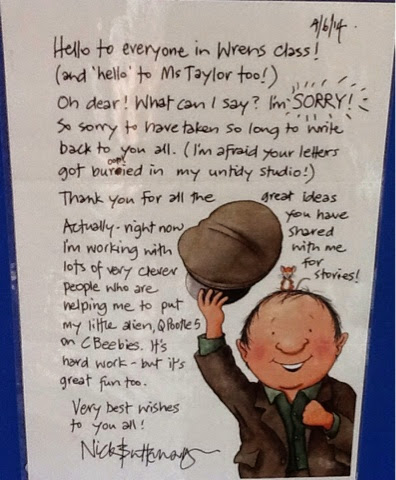 9/6/14
Hello to everyone in Wrens class!
(and 'hello' to Ms Taylor too!)
Oh dear! What can I say? I'm SORRY!
So sorry to have taken so long to write
back to you all. (I'm afraid your letters
oops!
got buried in my untidy studio!)
Thank you for all the great ideas
you have
shared
with me
for
stories!
Actually - right now
I'm working with
lots of very clever
people who are
helping me to put
my little alien, Q Pootle 5
on CBeebies. It's
hard work - but it's
great fun too.
Very best wishes
to you all!
Nick